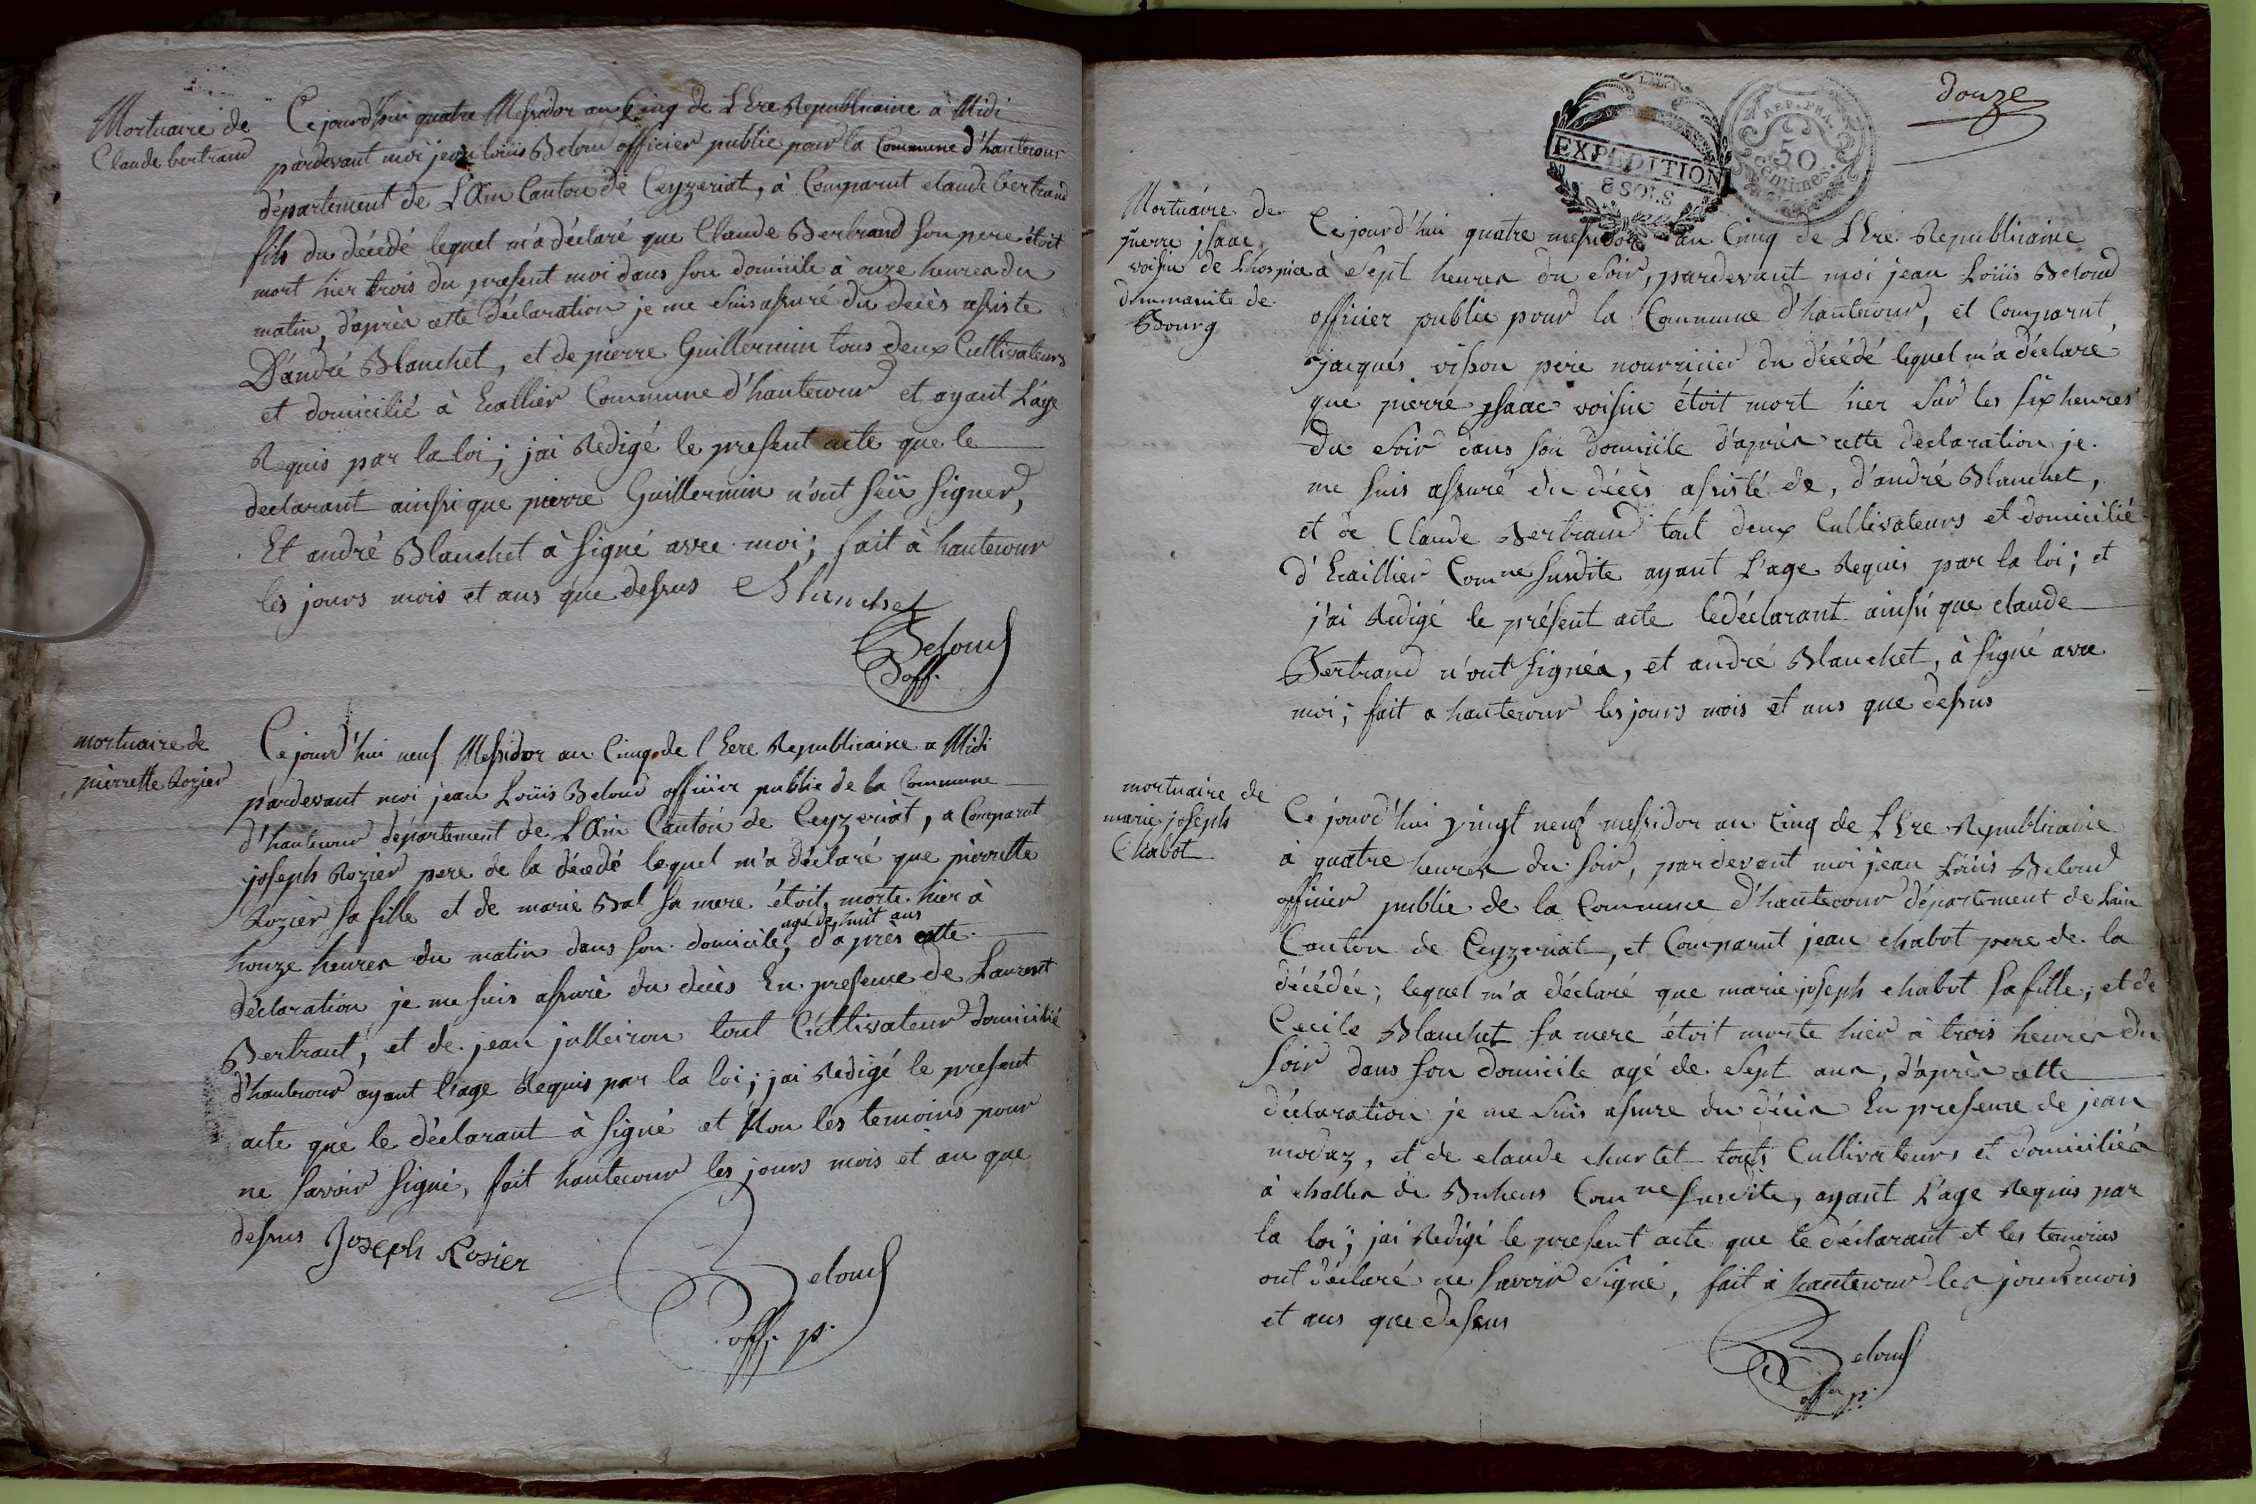 Mortuaire de
Claude bertrand
Ce jourd'hui quatre Messidor an Cinq de L'Ere Republicaine à Midi
pardevant moi jean loüis Beloud officier public pour la Commune d'hautecour
département de L'Ain Canton de Ceyzeriat, à Comparut claude bertrand
fils du décédé lequel m'a déclaré que Claude Bertrand son pere étoit
mort hier trois du present moi dans son domicile à onze heures du
matin, d'après cette déclaration je me suis assuré du decès assiste
D'andré Blanchet, et de pierre Guillermin tous deux Cultivateurs
et domicilié à Ecallier Commune d'hautecour et ayant L'age
Requis par la loi; jai Redigé le present acte que le
declarant ainsi que pierre Guillermin n'ont seü signer,
Et andré Blanchet à signé avec moi; fait à hautecour
les jours mois et ans que dessus Blanchet
Beloud
off.
mortuaire de
pierrette Rozier
Ce jourd'hui neuf Messidor an Cinq de l'Eere Republicaine a Midi
pardevant moi jean Loüis Beloud officier public de la Commune
d'hautecour département de L'Ain Canton de Ceyzeriat, a Comparut
joseph Rozier pere de la décedé lequel m'a déclaré que pierrette
Rozier sa fille et de marie Bal sa mere étoit morte hier à
agé de huit ans
honze heures du matin dans son domicile, d'après cette
déclaration je me suis assuré du decès En presence de Laurent
Bertrant, et de jean julleiron tout Cultivateur domicilié
d'hautecour ayant l'age Requis par la loi; jai Redigé le present
acte que le déclarant à signé et Non les temoins pour
ne savoir signé, fait hautecour les jours mois et an que
dessus Joseph Rosier
Beloud
off. p.
douze
LALOI
EXPEDITION
8 SOLS
REP. FRA.
50
Centimes.
Mortuaire de
pierre jsaac
voisin de Lhospice
dhummanite de
Bourg
Ce jourd'hui quatre messidor an Cinq de L'Ere Republicaine
à Sept heures du Soir, pardevant moi jean Loüis Beloud
officier public pour la Commune d'hautecour, et Comparut
jacques visson père nourricier du décédé lequel m'a déclaré
que pierre jsaac voisin étoit mort hier sur les six heures
du Soir dans son domicile d'après cette declaration je
me suis assuré du décès assisté de, d'andré Blanchet,
et de Claude Bertrand tout deux Cultivateurs et domicilié
d'Ecaillier Com.ne susdite ayant L'age Requis par la loi; et
j'ai Redigé le présent acte ledéclarant ainsi que claude
Bertrand n'ont signés, et andré Blanchet, à signé avec
moi; fait a hautecour les jours mois et ans que dessus
mortuaire de
marie joseph
Chabot
Ce jourd'hui vingt neuf messidor an Cinq de L'Ere Republicaine
à quatre heures du soir, pardevant moi jean Loüis Beloud
officier public de la Commune d'hautecour département de Lain
Canton de Ceyzeriat, et Comparut jean chabot pere de la
décédée; lequel m'a déclaré que marie joseph chabot sa fille, et de
Cecile Blanchet sa mere étoit morte hier à trois heures du
soir dans son domicile agé de Sept ans, d'après cette
déclaration je me suis assure du décès En presence de jean
moraz, et de claude churlet touts Cultivateurs et domiciliés
à challes de Bohens Com.ne susdite, ayant L'age Requis par
la loi; jai Redigé le present acte que le déclarant et les temoins
ont déclaré ne savoir signé, fait à hautecour les jours mois
et ans que dessus
Beloud
off. p.